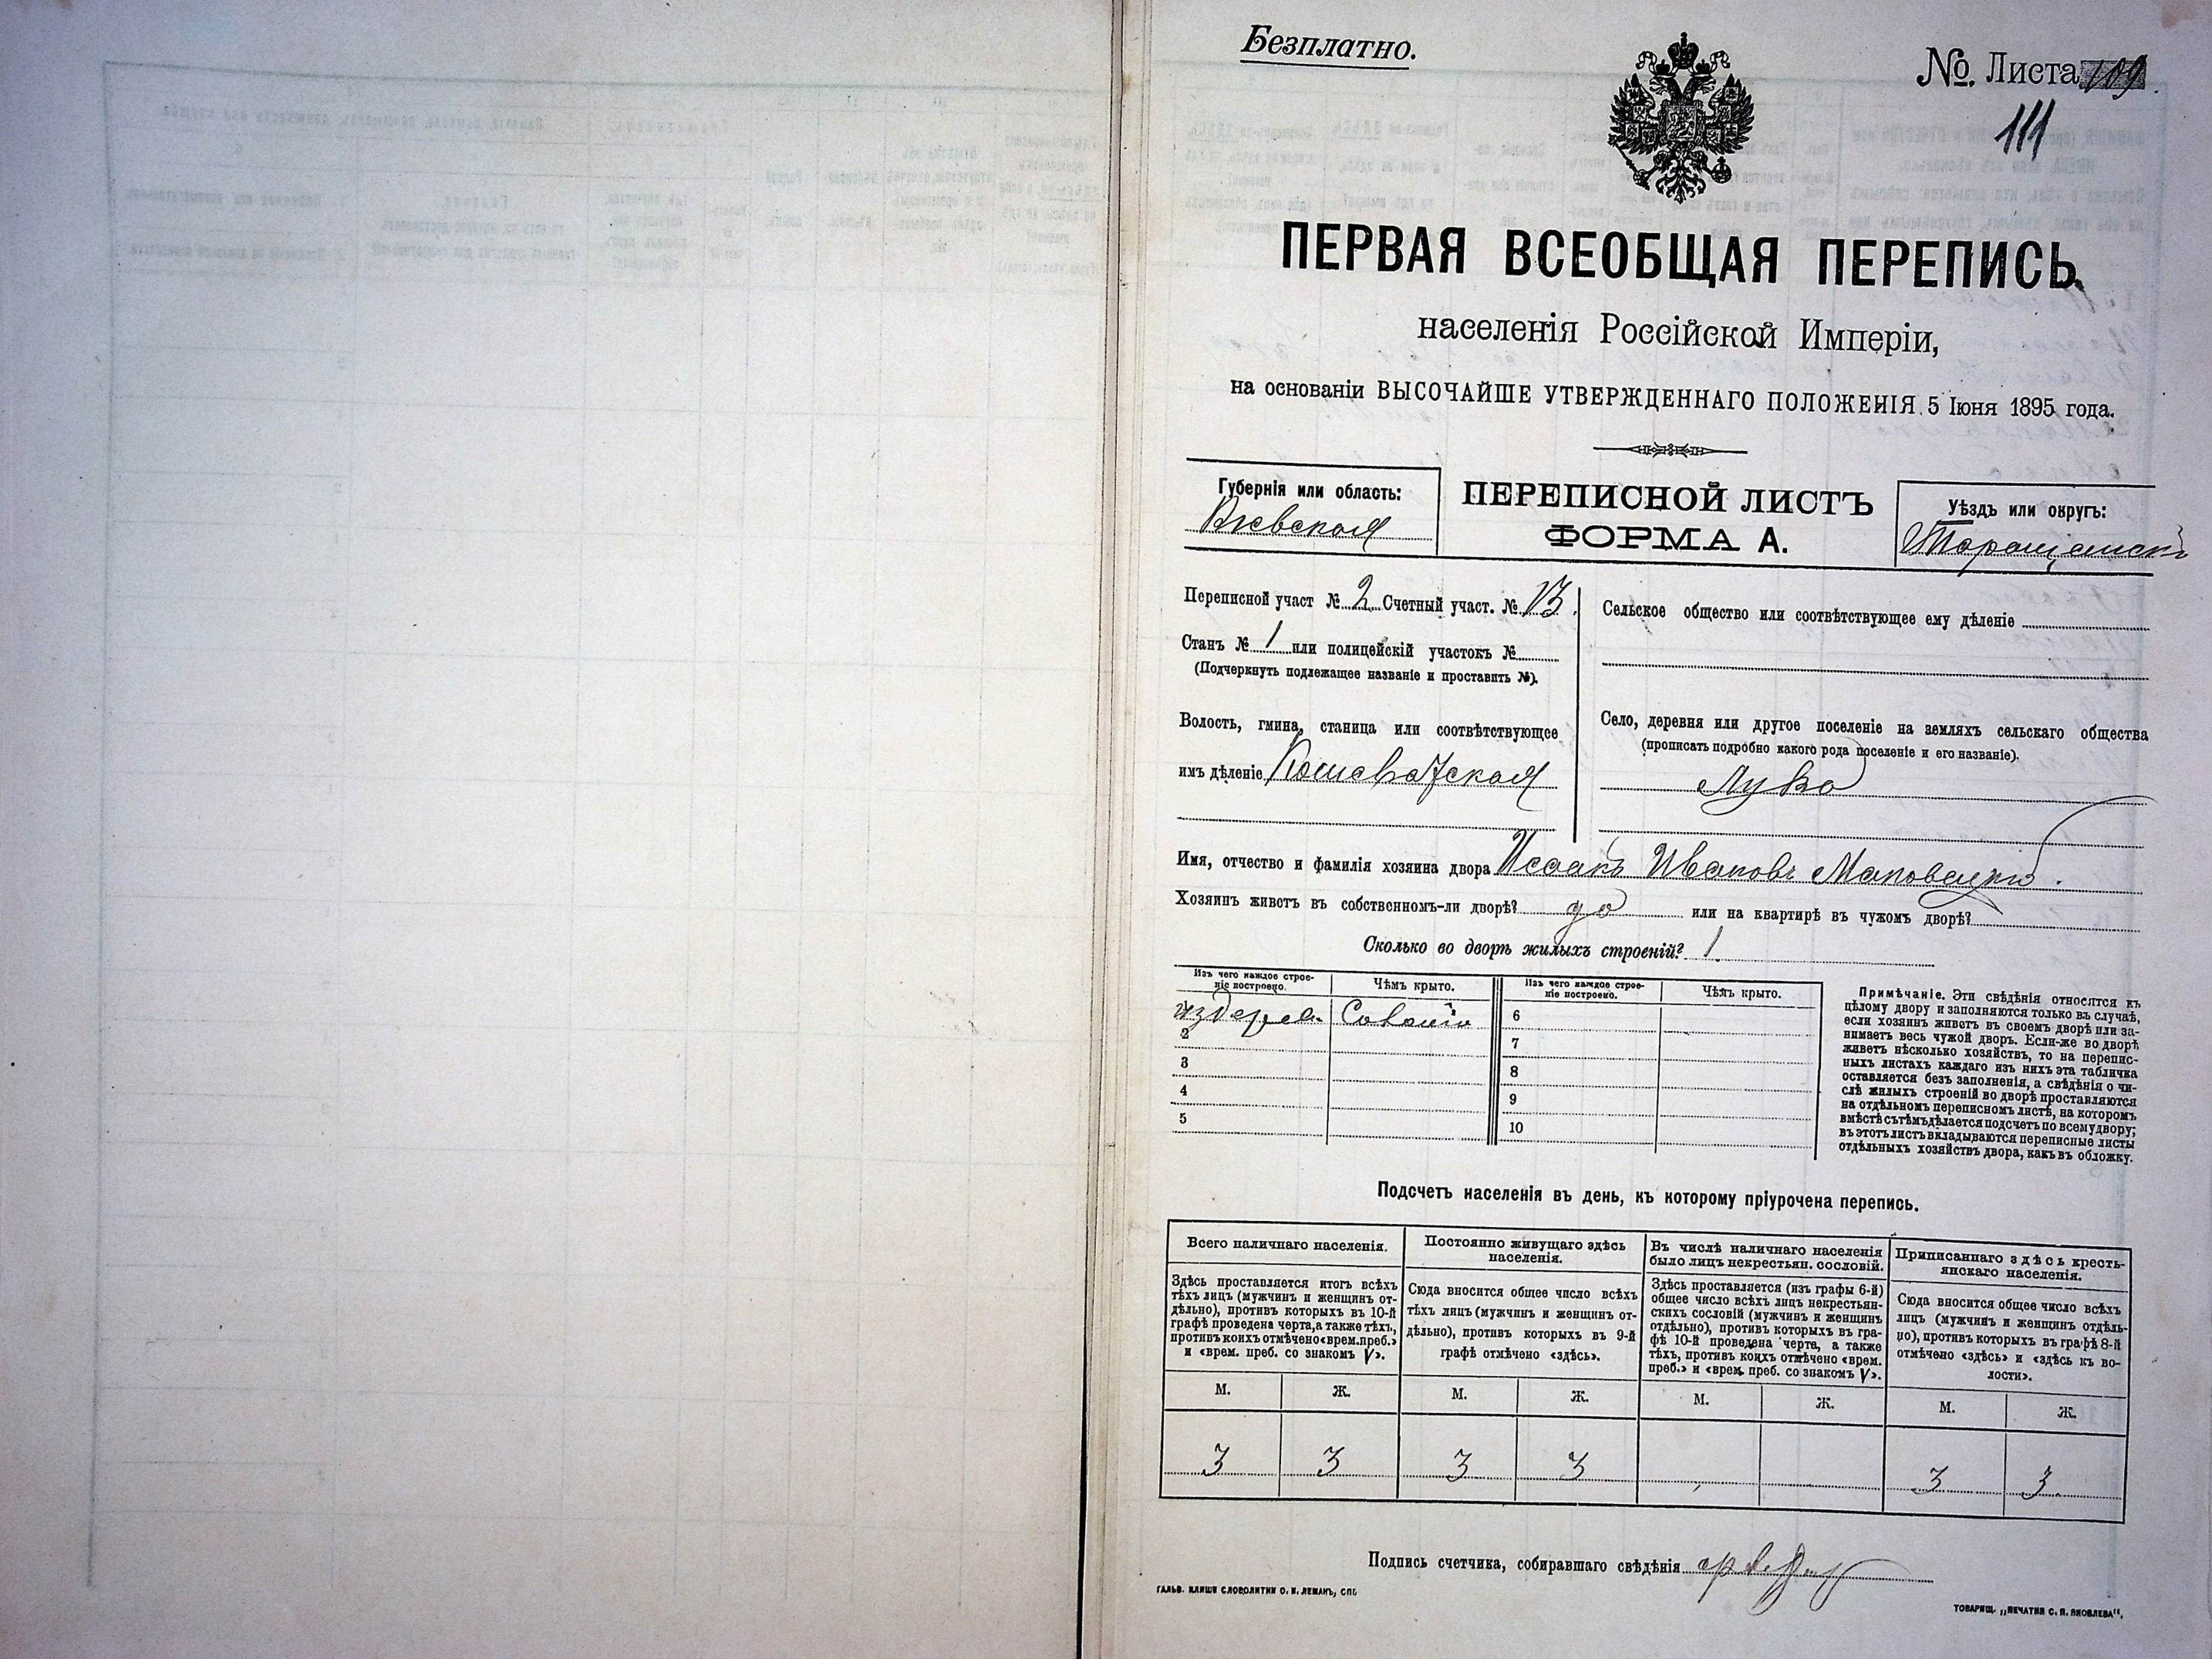 Безплатно.
№. Листа 109
111
ПЕРВАЯ ВСЕОБЩАЯ ПЕРЕПИСЬ
населенія Россійской Имперіи,
на основаніи ВЫСОЧАЙШЕ УТВЕРЖДЕННАГО ПОЛОЖЕНІЯ 5 Іюня 1895 года.
Губернія или область:
Кіевская
ПЕРЕПИСНОЙ ЛИСТЪ
ФОРМА А.
Уѣздъ или округъ:
Таращанскъ
Переписной участ № 2 Счетный участ. № 13.
Станъ № 1 или полицейскій участокъ №
(Подчеркнуть подлежащее названіе и проставить №).
Волость, гмина, станица или соотвѣтствующее
имъ дѣленіе Кошеватская
Сельское общество или соотвѣтствующее ему дѣленіе
Село, деревня или другое поселеніе на земляхъ сельскаго общества
(прописать подробно какого рода поселеніе и его названіе).
Лука
Имя, отчество и фамилія хозяина двора Исаакъ Ивановъ
Хозяинъ живетъ въ собственномъ-ли дворѣ? да или на квартирѣ въ чужомъ дворѣ?
Сколько во дворѣ жилыхъ строеній? 1
Изъ чего каждое строе-
ніе построено.
Чѣмъ крыто.
Изъ чего каждое строе-
ніе построено.
Чѣмъ крыто.
из дерев.
6
2
7
3
8
4
9
5
10
Примѣчаніе. Эти свѣдѣнія относятся къ
цѣлому двору и заполняются только въ случаѣ,
если хозяинъ живетъ въ своемъ дворѣ или за-
нимаетъ весь чужой дворъ. Если-же во дворѣ
живетъ нѣсколько хозяйствъ, то на перепис-
ныхъ листахъ каждаго изъ нихъ эта табличка
оставляется безъ заполненія, а свѣдѣнія о чи-
слѣ жилыхъ строеній во дворѣ проставляются
на отдѣльномъ переписномъ листѣ, на которомъ
вмѣстѣ съ тѣмъ дѣлается подсчетъ по всему двору;
въ этотъ листъ вкладываются переписные листы
отдѣльныхъ хозяйствъ двора, какъ въ обложку.
Подсчетъ населенія въ день, къ которому пріурочена перепись.
Всего наличнаго населенія.
Здѣсь проставляется итогъ всѣхъ
тѣхъ лицъ (мужчинъ и женщинъ от-
дѣльно), противъ которыхъ въ 10-й
графѣ проведена черта, а также тѣхъ,
противъ коихъ отмѣчено «врем. преб.»
и «врем. преб. со знакомъ V».
Постоянно живущаго здѣсь
населенія.
Сюда вносится общее число всѣхъ
тѣхъ лицъ (мужчинъ и женщинъ от-
дѣльно), противъ которыхъ въ 9-й
графѣ отмѣчено «здѣсь».
Въ числѣ наличнаго населенія
было лицъ некрестьян. сословій.
Здѣсь проставляется (изъ графы 6-й)
общее число всѣхъ лицъ некрестьян-
скихъ сословій (мужчинъ и женщинъ
отдѣльно), противъ которыхъ въ гра-
фѣ 10-й проведена черта, а также
тѣхъ, противъ коихъ отмѣчено «врем.
преб.» и «врем. преб. со знакомъ V».
Приписаннаго здѣсь кресть-
янскаго населенія.
Сюда вносится общее число всѣхъ
лицъ (мужчинъ и женщинъ отдѣль-
но), противъ которыхъ въ графѣ 8-й
отмѣчено «здѣсь» и «здѣсь къ во-
лости».
М. Ж. М. Ж. М. Ж. М. Ж.
3 3 3 3 3 3
Подпись счетчика, собиравшаго свѣдѣнія
ГАЛЬВ. КЛИШЕ СЛОВОЛИТНИ О. И. ЛЕМАНЪ, СПБ
ТОВАРИЩ. „ПЕЧАТНЯ С. П. ЯКОВЛЕВА“.